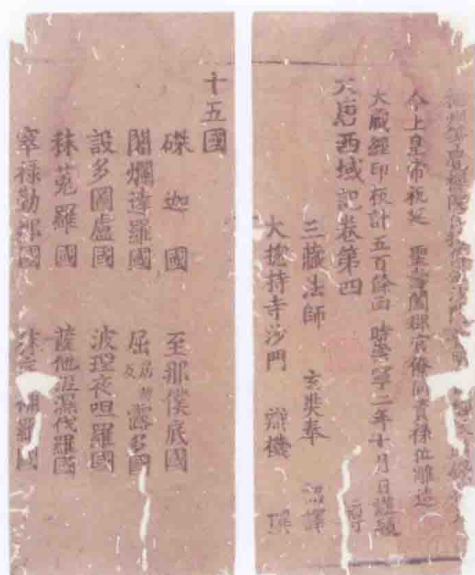 福州等覺禪院住持傳法沙門
今上皇帝祝延 聖壽闔郡官僚同資祿位雕造
大藏經印板計五百餘函 時熙寧二年十月日謹題
大唐西域記卷第四
三藏法師 玄奘奉 詔譯
大揔持寺沙門 辯機 撰
十五國
磔迦國 至那僕底國
闍爛達羅國 屈居勿反露多國
設多圖盧國 波理夜呾羅國
秣菟羅國 薩他泥濕伐羅國
窣祿勤那國 秣補羅國